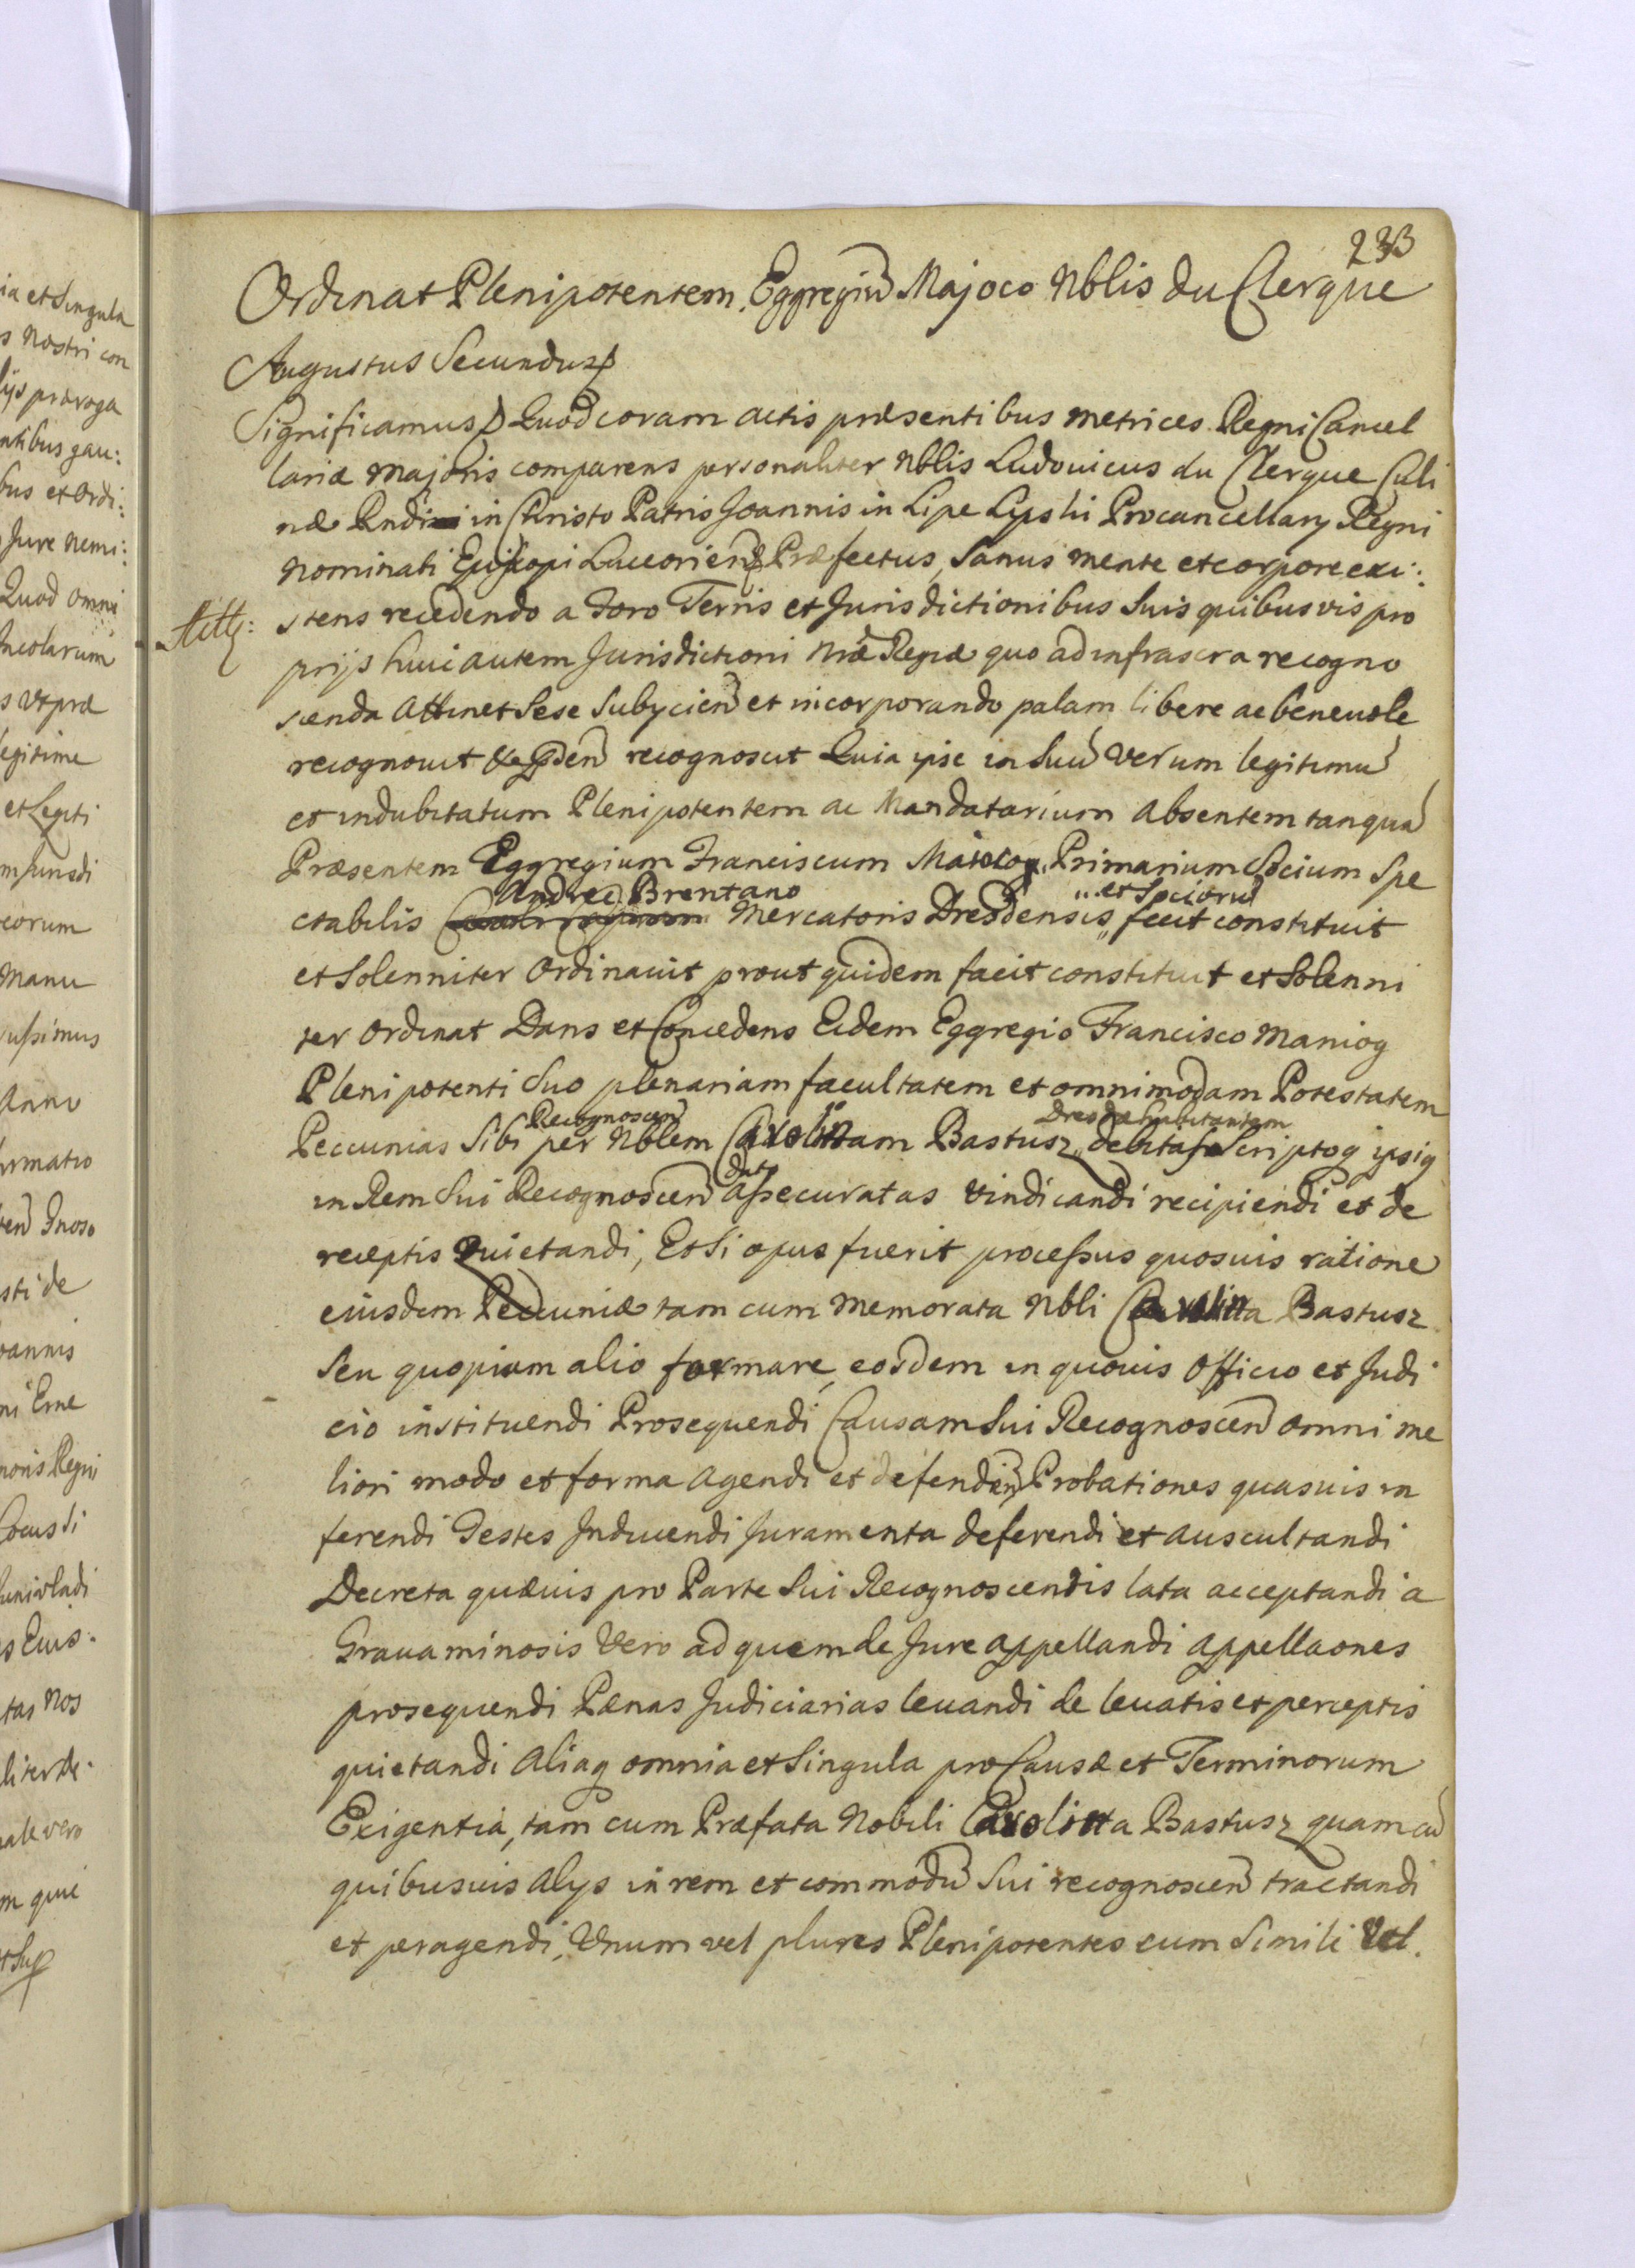 233
Ordinat Plenipotentem Eggregiũ Majoco Nblis du Clerque
Augustus Secundus
Significamus Quod coram actis præsentibus metrices Regni Cancel
lariæ Majoris comparens personaliter Nblis Ludovicus du Clerque Culi
næ Rndi in Christo Patris Joannis in Lipe Lipski Procancellarij Regni
Nominati Episcopi Luceorien Præfectus, Sanus mente et corpore exi:
stens recedendo a Foro Terris et Jurisdictionibus Suis quibusvis pro
prijs huic autem Jurisdictioni Nræ Regiæ quo ad infrascra recogno
scenda Attinet Sese Subijcien et incorporando palam libere ac beneuole
recognouit recognoscit Quia ipse in Suũ Verum legitimũ
et indubitatum Plenipotentem ac Mandatarium absentem tanquã
Præsentem Eggregium Franciscum Primarium Socium Spe
Andreæ Brentano et Sociorũ
ctabilis Mercatoris Dresdensis fecit constituit
et Solenniter Ordinauit prout quidem facit constituit et Solenni
ter Ordinat Dans et Concedens Eidem Eggregio Francisco Maniog
Plenipotenti Suo plenariam facultatem et omnimodam Potestatem
Recognoscen Dresdæ habitantem
Peccunias Sibi per Nblem Carolinam Bastusz debitas Scriptoq ipsiq
dat
in Rem Sui Recognoscen assecuratas vindicandi recipiendi et de
receptis Quietandi, Et Si opus fuerit processus quosuis ratione
eiusdem Peccuniæ tam cum memorata Nbli Carolina Bastusz
Seu quopiam alio formare, eosdem in quouis Officio et Judi
cio instituendi Prosequendi Causam Sui Recognoscen omni me
liori modo et forma agendi et defenden Probationes quasuis in
ferendi Testes Inducendi Juramenta deferendi et auscultandi
Decreta quæuis pro Parte Sui Recognoscendis lata acceptandi a
Grauaminosis Vero ad quem de Jure appellandi appellaones
prosequendi Pænas Judiciarias leuandi de leuatis et perceptis
quietandi Aliaq omnia et Singula pro Causæ et Terminorum
Exigentia, tam cum Præfata Nobili Carolina Bastusz quam cũ
quibusuis Alijs in rem et commodũ Sui recognoscen tractandi
et peragendi, Vnum vel plures Plenipotentes cum Simili Vel